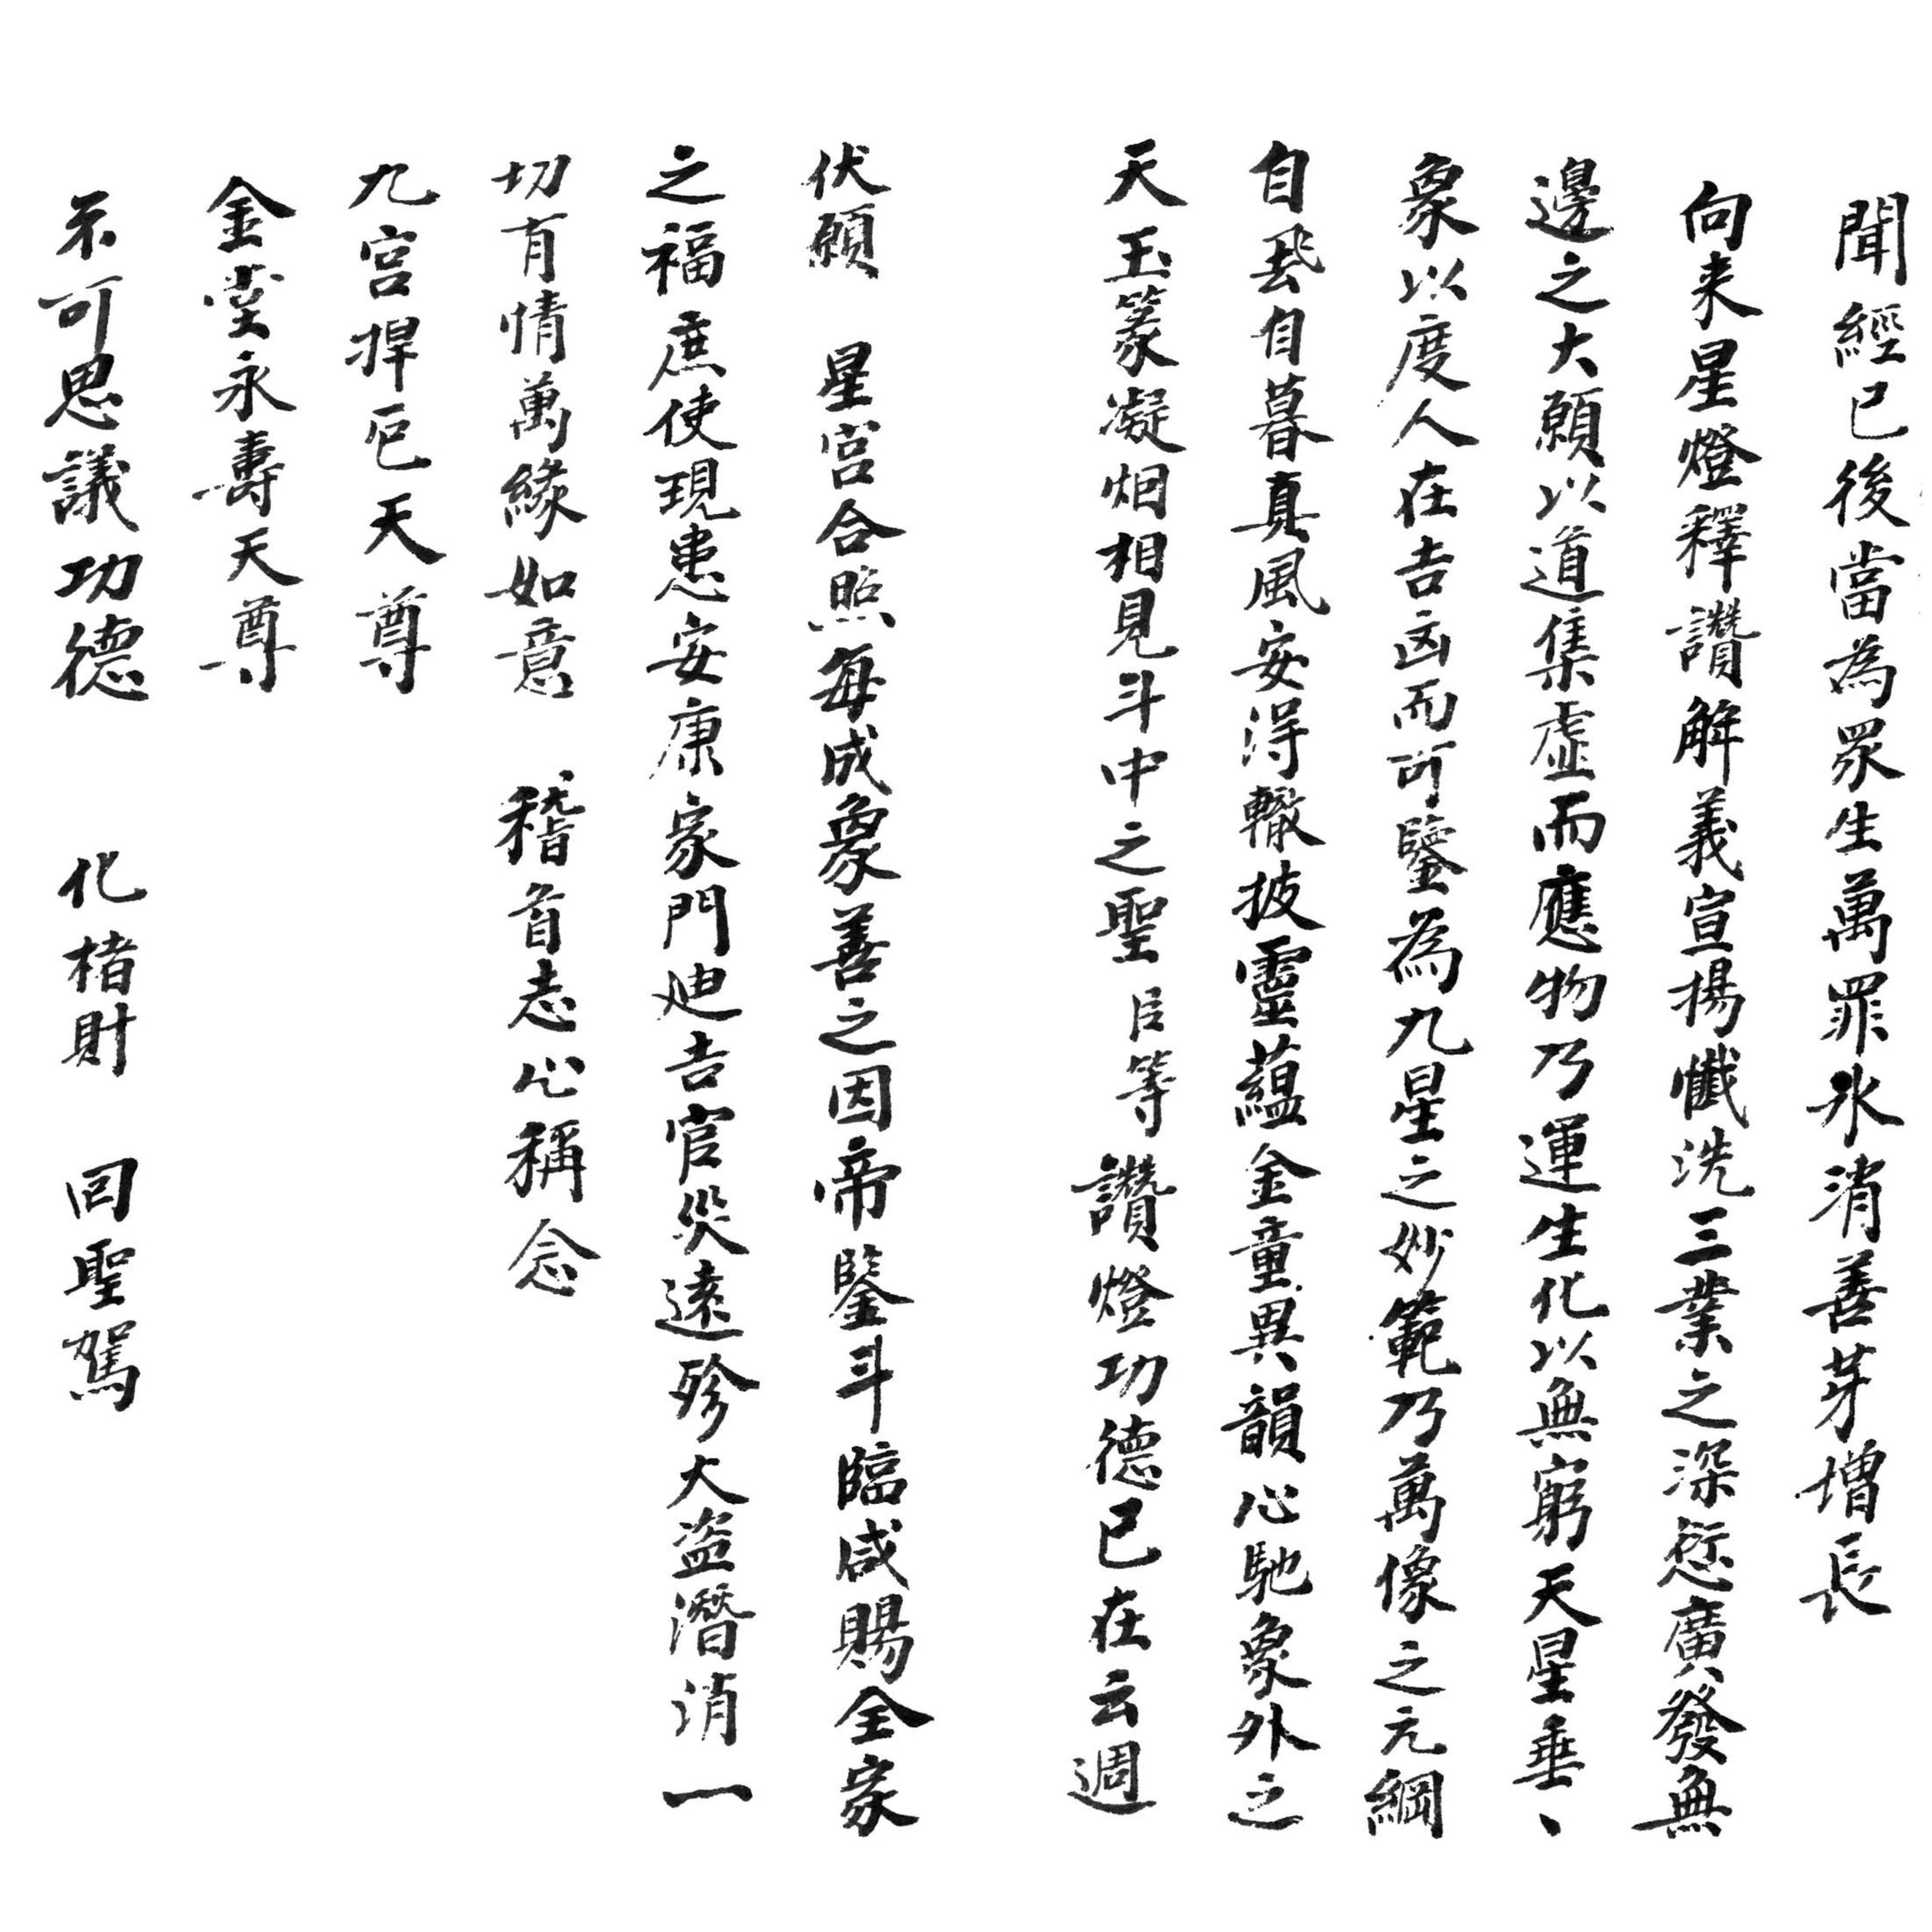 聞經已後當為眾生萬罪氷消善芽增長
向来星燈釋讚解義宣揚懺洗三業之深愆廣發無
邊之大願以道集虛而應物乃運生化以無窮天星垂、
象以度人在吉凶而可鑒為九星之妙範乃萬像之元綱
自昏自暮真風安得轍披靈蘊金童異韻心馳象外之
天玉篆凝烟相見斗中之聖臣等讚燈功德已在云週
伏願　星宮合照每成象善之因帝鑒斗臨咸賜全家
之福庶使現患安康家門迪吉官災遠殄大盜潛消一
切有情萬緣如意　稽首志心稱念
九宮捍厄天尊
金堂永壽天尊
不可思議功德　化楮財　回聖駕